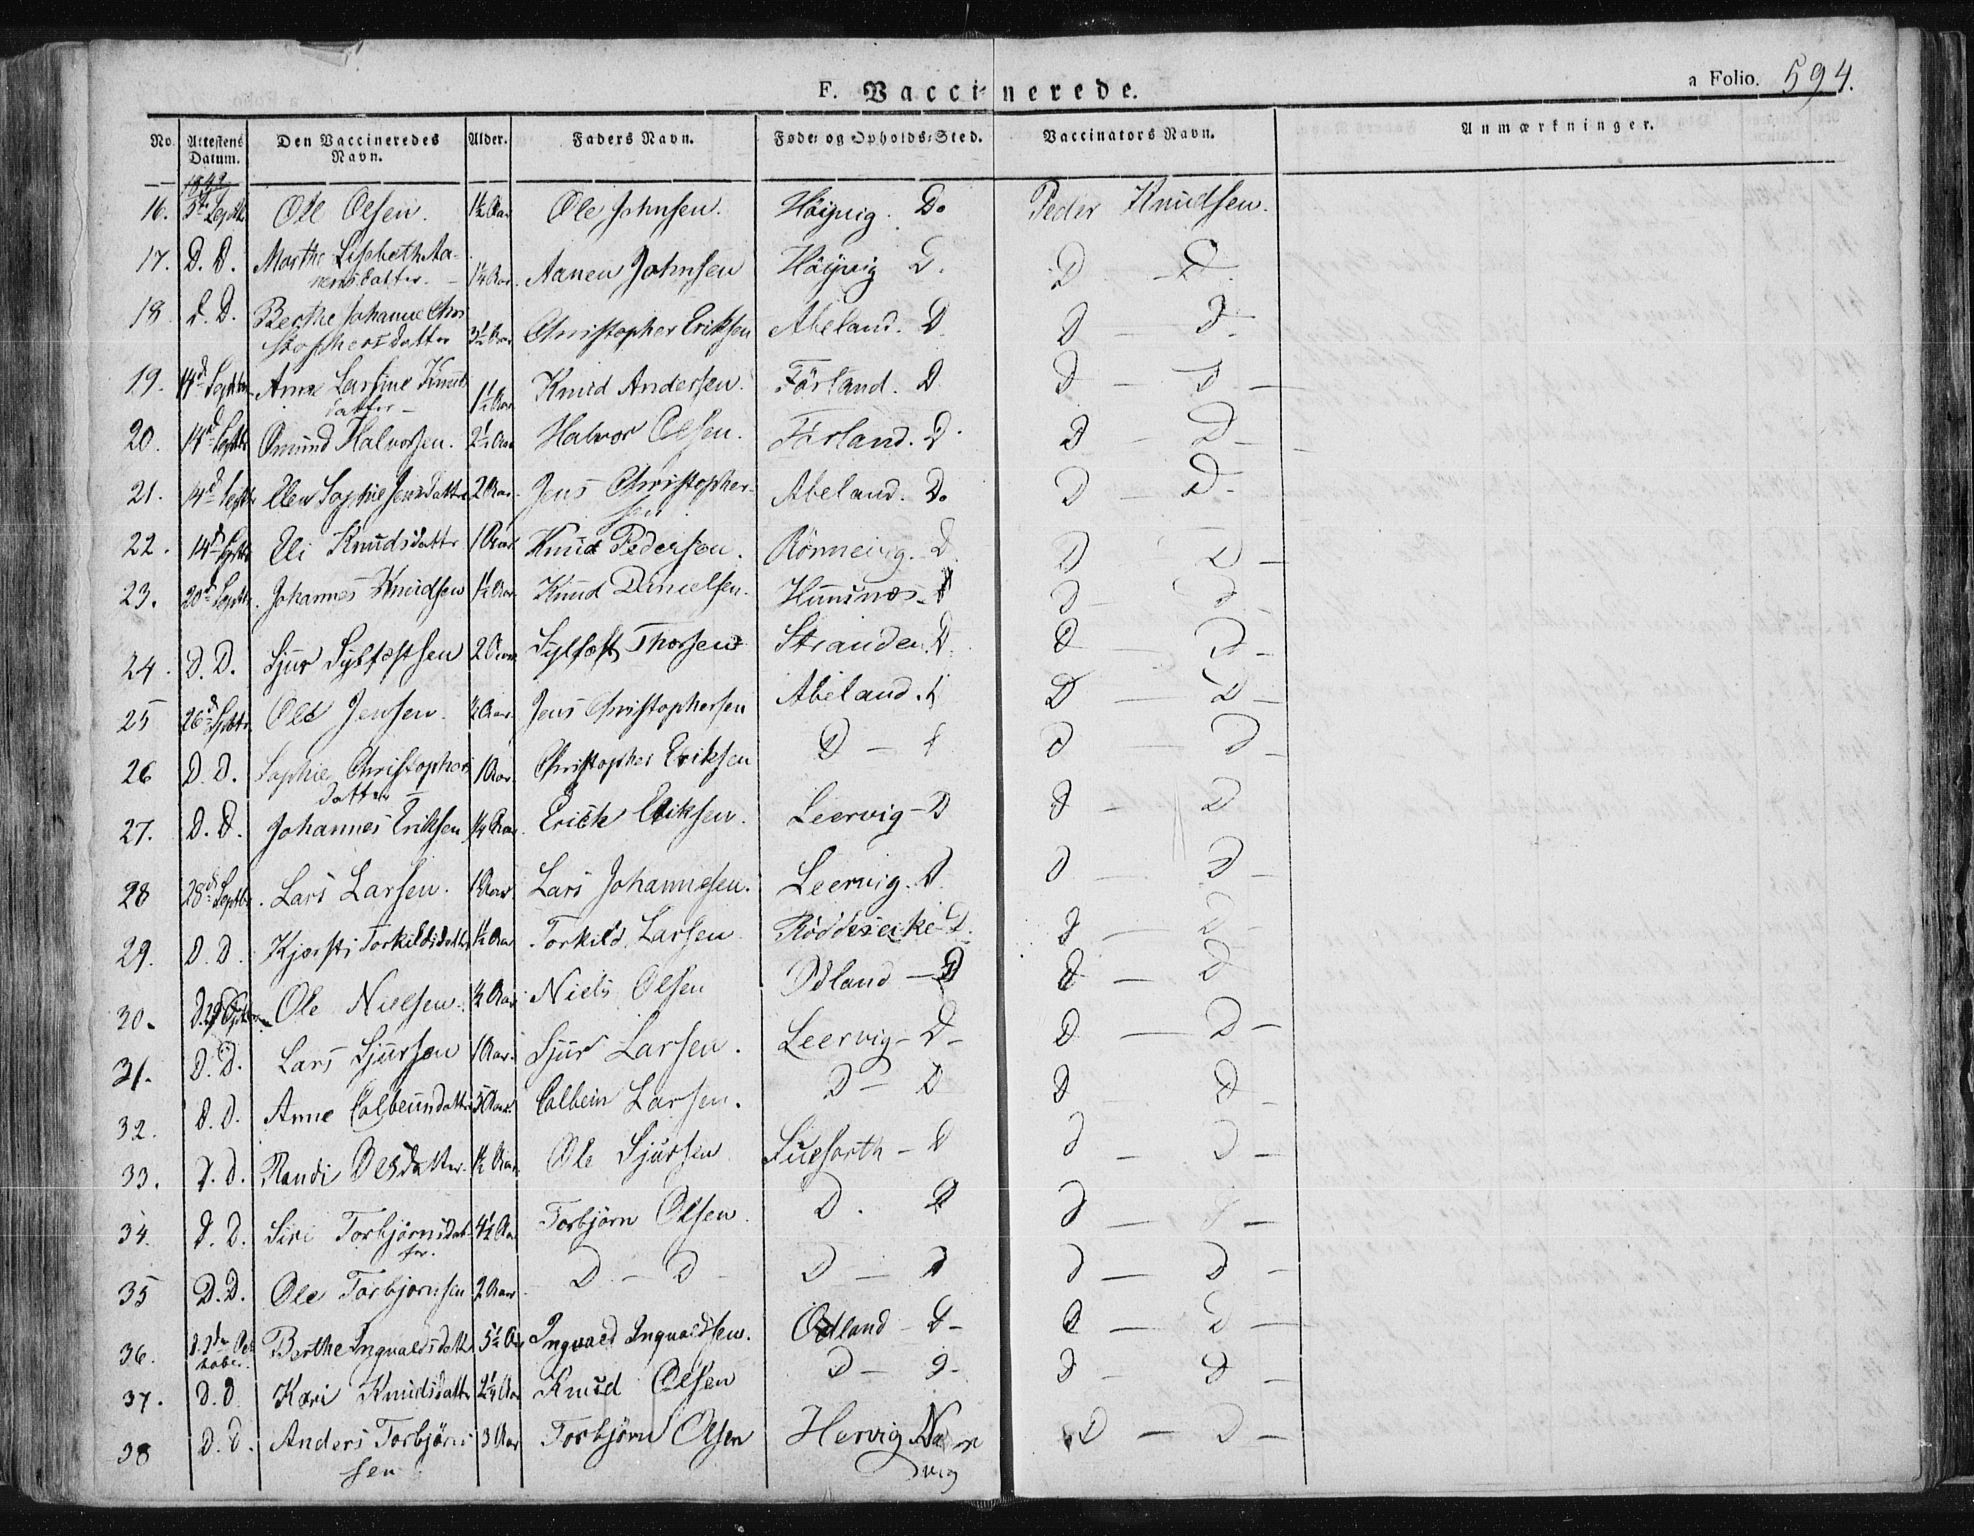 F. Vaccinerede. a Folio. 594.
No. Attestens Datum. Den Vaccineredes Navn. Alder. Faders Navn. Føde- og Opholds-Sted. Vaccinators Navn. Anmærkninger.
16. 5te Septbr Ole Olsen. 1½ Aar Ole Johnsen. Höijvig. Do Peder Knudsen.
17. D. D. Marthe Lisbeth Aa-
nensdatter. 1¼ Aar. Aanen Johnsen Höijvig D. D — D.
18. D. D. Berthe Johanne Chri
stophersdatter 3½ Aar Christopher Eriksen Abeland. D. D — D.
19. 14d Septbr Anne Larsine Knud
datter — 1½ Aar Knud Andersen. Förland. D. D — D —
20. 14d Septbr Omund Halvorsen. 2½ Aar Halvor Olsen. Förland. D. D — D —
21. 14d Septbr Elen Sophie Jensdatter 2 Aar. Jens Christopher-
sen Abeland. Do D — D.
22. 14d Septbr Eli Knudsdatter 1 Aar. Knud Pedersen. Rönnevig. D. D — D —
23. 20d Septbr. Johannes Knudsen 1½ Aar. Knud Danielsen. Hunsnæs. D D — D —
24. D. D. Sjur Sylfæstsen 2 Aar Sylfæst Thorsen Stranden. D. D — D —
25 26d Septbr. Ole Jensen. ½ Aar. Jens Christophersen Abeland. D D — D —
26 D. D. Sophie Christophers
datter — 1 Aar. Christopher Eriksen D — D D — D —
27. D. D. Johannes Eriksen ¼ Aar. Erich Eriksen. Leervig — D D — D
28 28d Septbr. Lars Larsen. 1 Aar Lars Johannesen. Leervig. D. D — D —
29. D. D. Kjersti Torkildsdatter 1½ Aar Torkild Larsen Röddeseike D. D — D —
30. Ole Nielsen. ½ Aar Niels Olsen Odland — D D — D
31. D. D. Lars Sjursen 1 Aar. Sjur Larsen. Leervig — D — D — D —
32. D. D. Anne Colbeinsdatter 5 Aar Colbein Larsen. D — D D — D —
33. D. D. Randi Olsdatter. 1½ Aar Ole Sjursen — D D — D —
34. D. D. Siri Torbjörnsdat-
ter. 4½ Aar Torbjörn Olsen D. D D — D —
35 D. D. Ole Torbjornsen 2 Aar D — D — D — D D — D —
36. Berthe Ingvaldsdatter 5½ Aar Ingvald Ingvaldsen. Odland — D — D — D —
37. D. D Kari Knudsdatter 2¼ Aar Knud Olsen D — D — D — D —
38 D. D. Anders Torbjörn
sen 3 Aar Torbjörn Olsen Hervig
vig D — D —